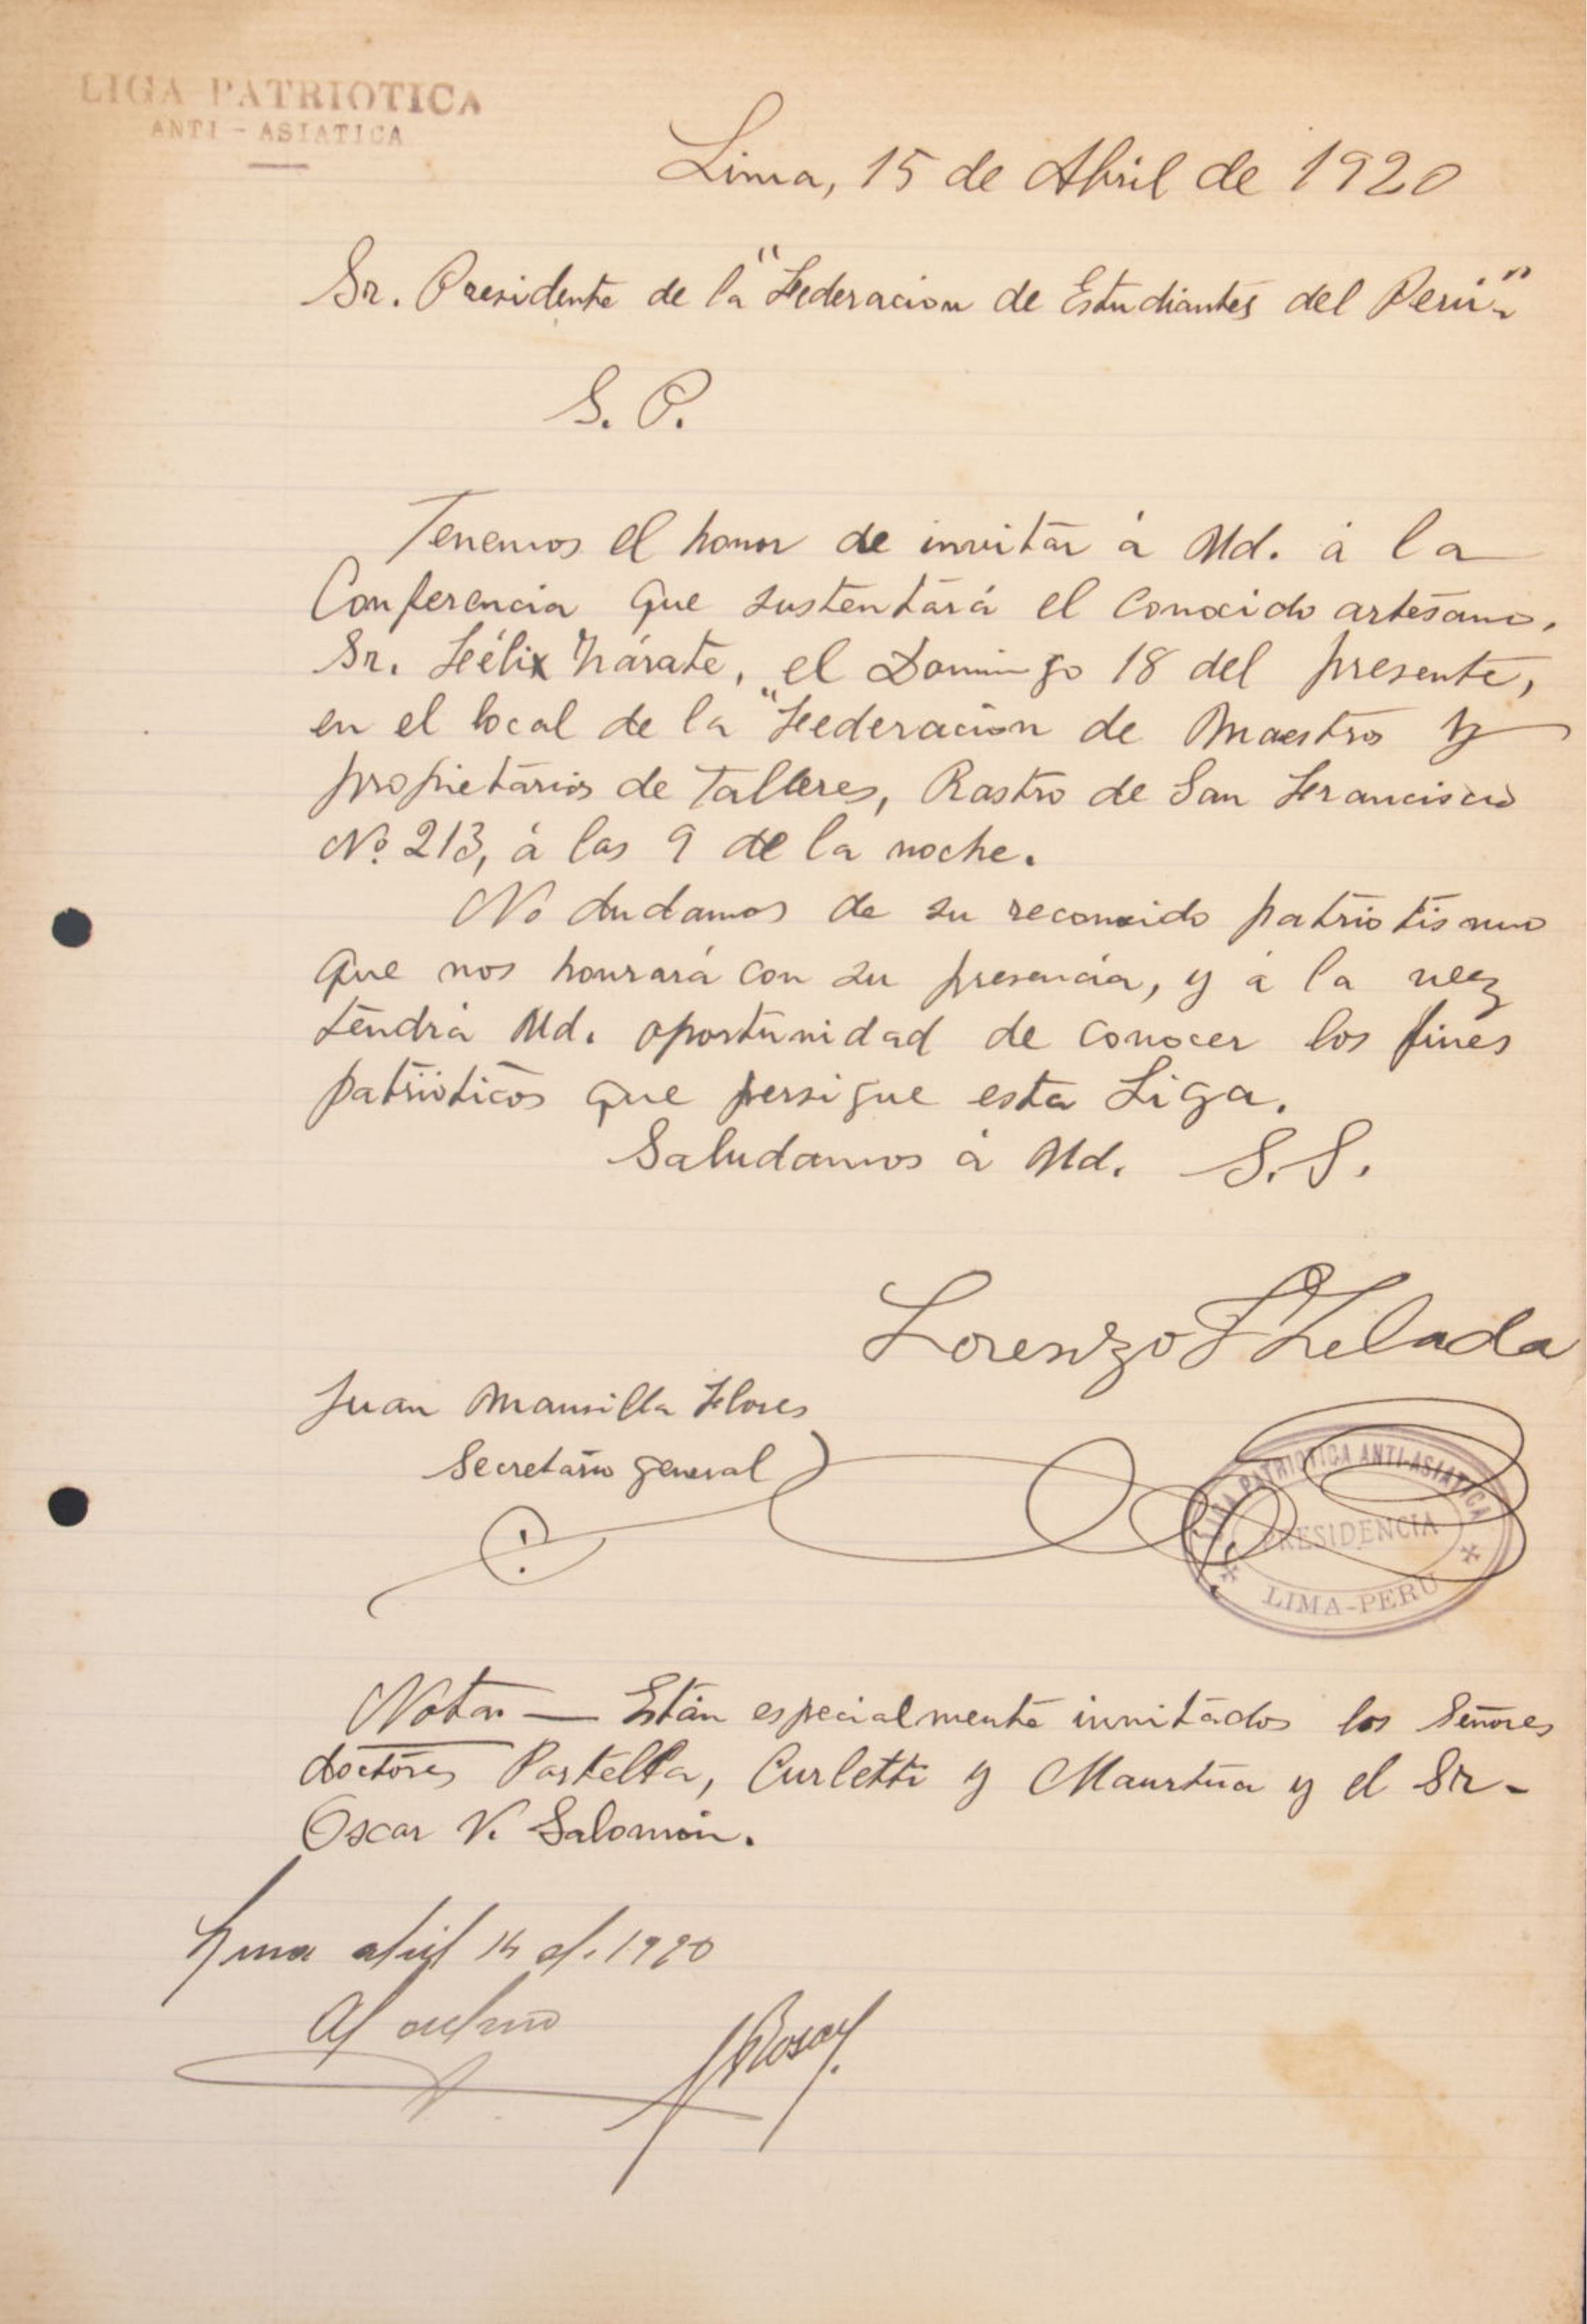 LIGA PATRIOTICA
ANTI-ASIATICA
Lima, 15 de Abril de 1920
Sr. Presidente de la "Federacion de Estudiantes del Perú"
S. P.
Tenemos el honor de invitar á Ud. á la
Conferencia que sustentará el conocido artesano,
Sr. Félix Zárate, el Domingo 18 del presente,
en el local de la "Federación de Maestros y
propietarios de Talleres, Rastro de San Francisco
Nº 213, á las 9 de la noche.
No dudamos de su reconocido patriotismo
que nos honrará con su presencia, y á la vez
tendrá Ud. oportunidad de conocer los fines
patrióticos que persigue esta Liga.
Saludamos á Ud. S. S.
Lorenzo Zelada
Juan Mansilla Flores
Secretario general
LIGA PATRIOTICA ANTI-ASIATICA
PRESIDENCIA
LIMA-PERU
Nota — Están especialmente invitados los Señores
doctores Portella, Curletti y Maurtua y el Sr.
Oscar V. Salomón.
Lima abril de 1920
Al archivo